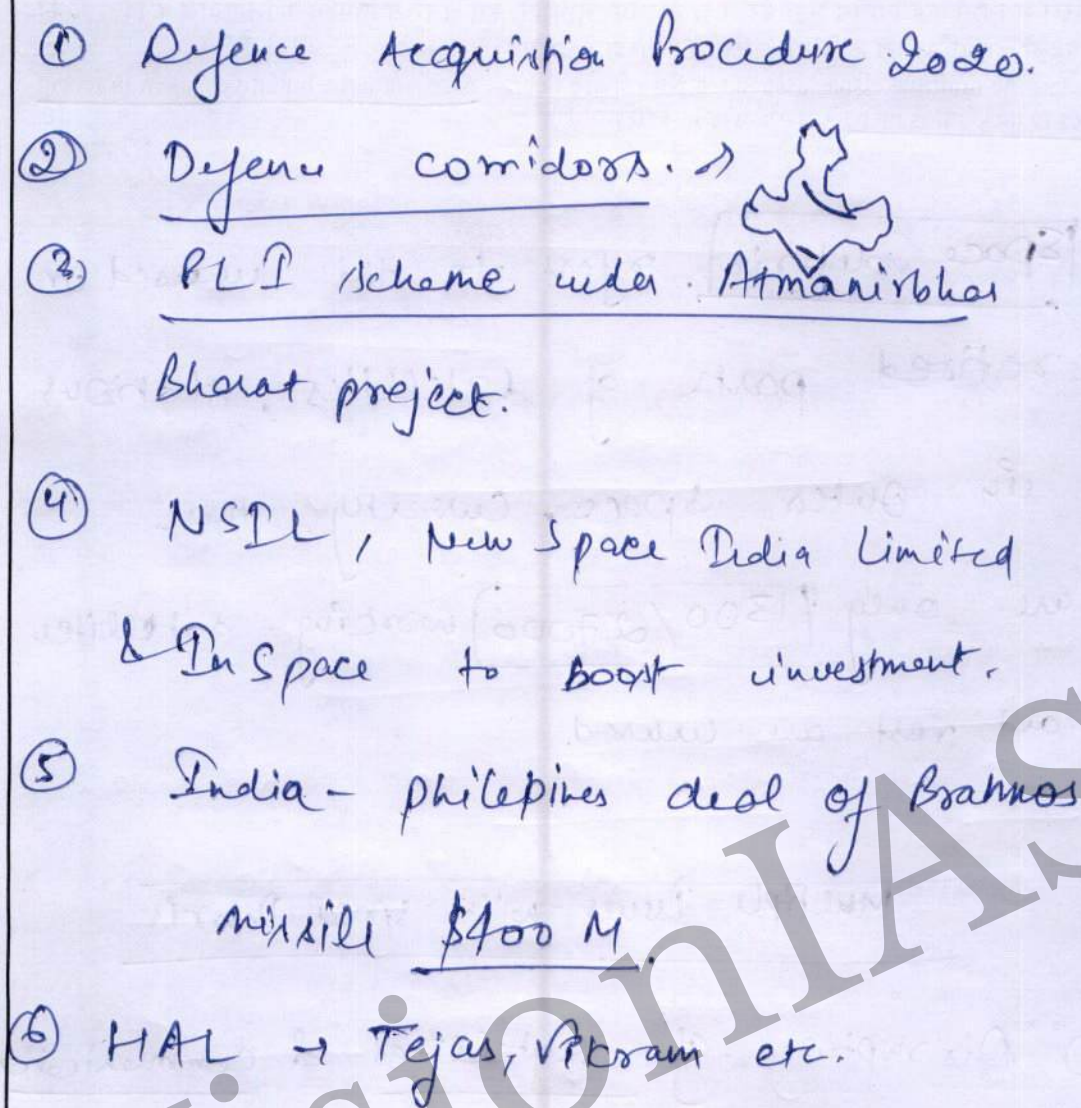 ① Defence Acquisition Procedure 2020.
② Defence corridors. →
③ PLI scheme under Atmanirbhar
Bharat project.
④ NSIL, New Space India Limited
& In Space to boost investment.
⑤ India - philipines deal of Brahmos
missile $400 M.
⑥ HAL → Tejas, Vikram etc.
VisionIAS